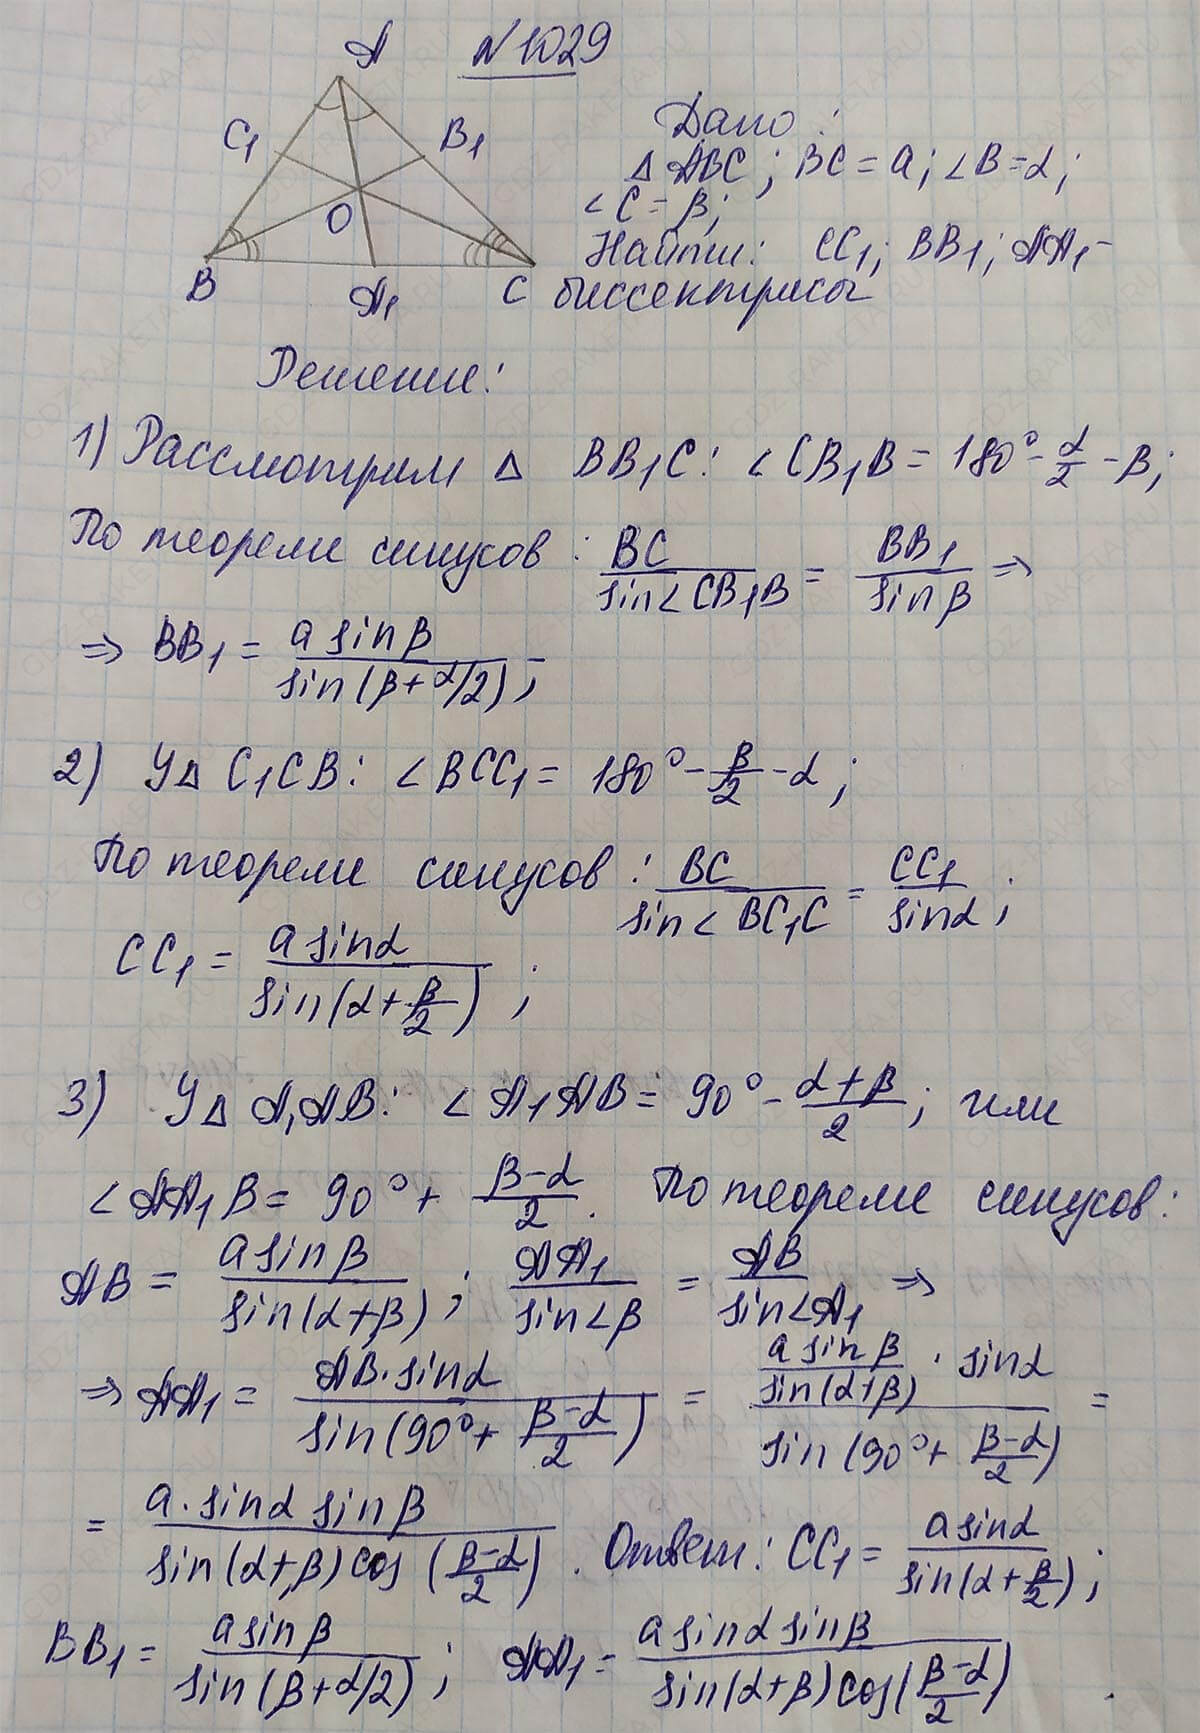 №1029
A
C₁
B₁
O
B
A₁
C
Дано:
△ ABC; BC = a; ∠B = α;
∠C = β;
Найти: CC₁; BB₁; AA₁ -
биссектрисы
Решение:
1) Рассмотрим △ BB₁C: ∠CB₁B = 180° - α/2 - β;
По теореми синусов: BC/sin∠CB₁B = BB₁/sinβ ⇒
⇒ BB₁ = a sinβ/sin(β + α/2);
2) У△ C₁CB: ∠BCC₁ = 180° - β/2 - α;
По теореми синусов: BC/sin∠BC₁C = CC₁/sinα;
CC₁ = a sinα/sin(α + β/2);
3) У△ A₁AB: ∠A₁AB = 90° - (α+β)/2; или
∠AA₁B = 90° + (β-α)/2. По теореми синусов:
AB = a sinβ/sin(α+β); AA₁/sin∠β = AB/sin∠A₁ ⇒
⇒ AA₁ = AB·sinα/sin(90° + (β-α)/2) = (a sinβ/sin(α+β) · sinα)/sin(90° + (β-α)/2) =
= a·sinα sinβ/sin(α+β)cos((β-α)/2). Ответ: CC₁ = a sinα/sin(α + β/2);
BB₁ = a sinβ/sin(β + α/2); AA₁ = a sinα sinβ/sin(α+β)cos((β-α)/2).